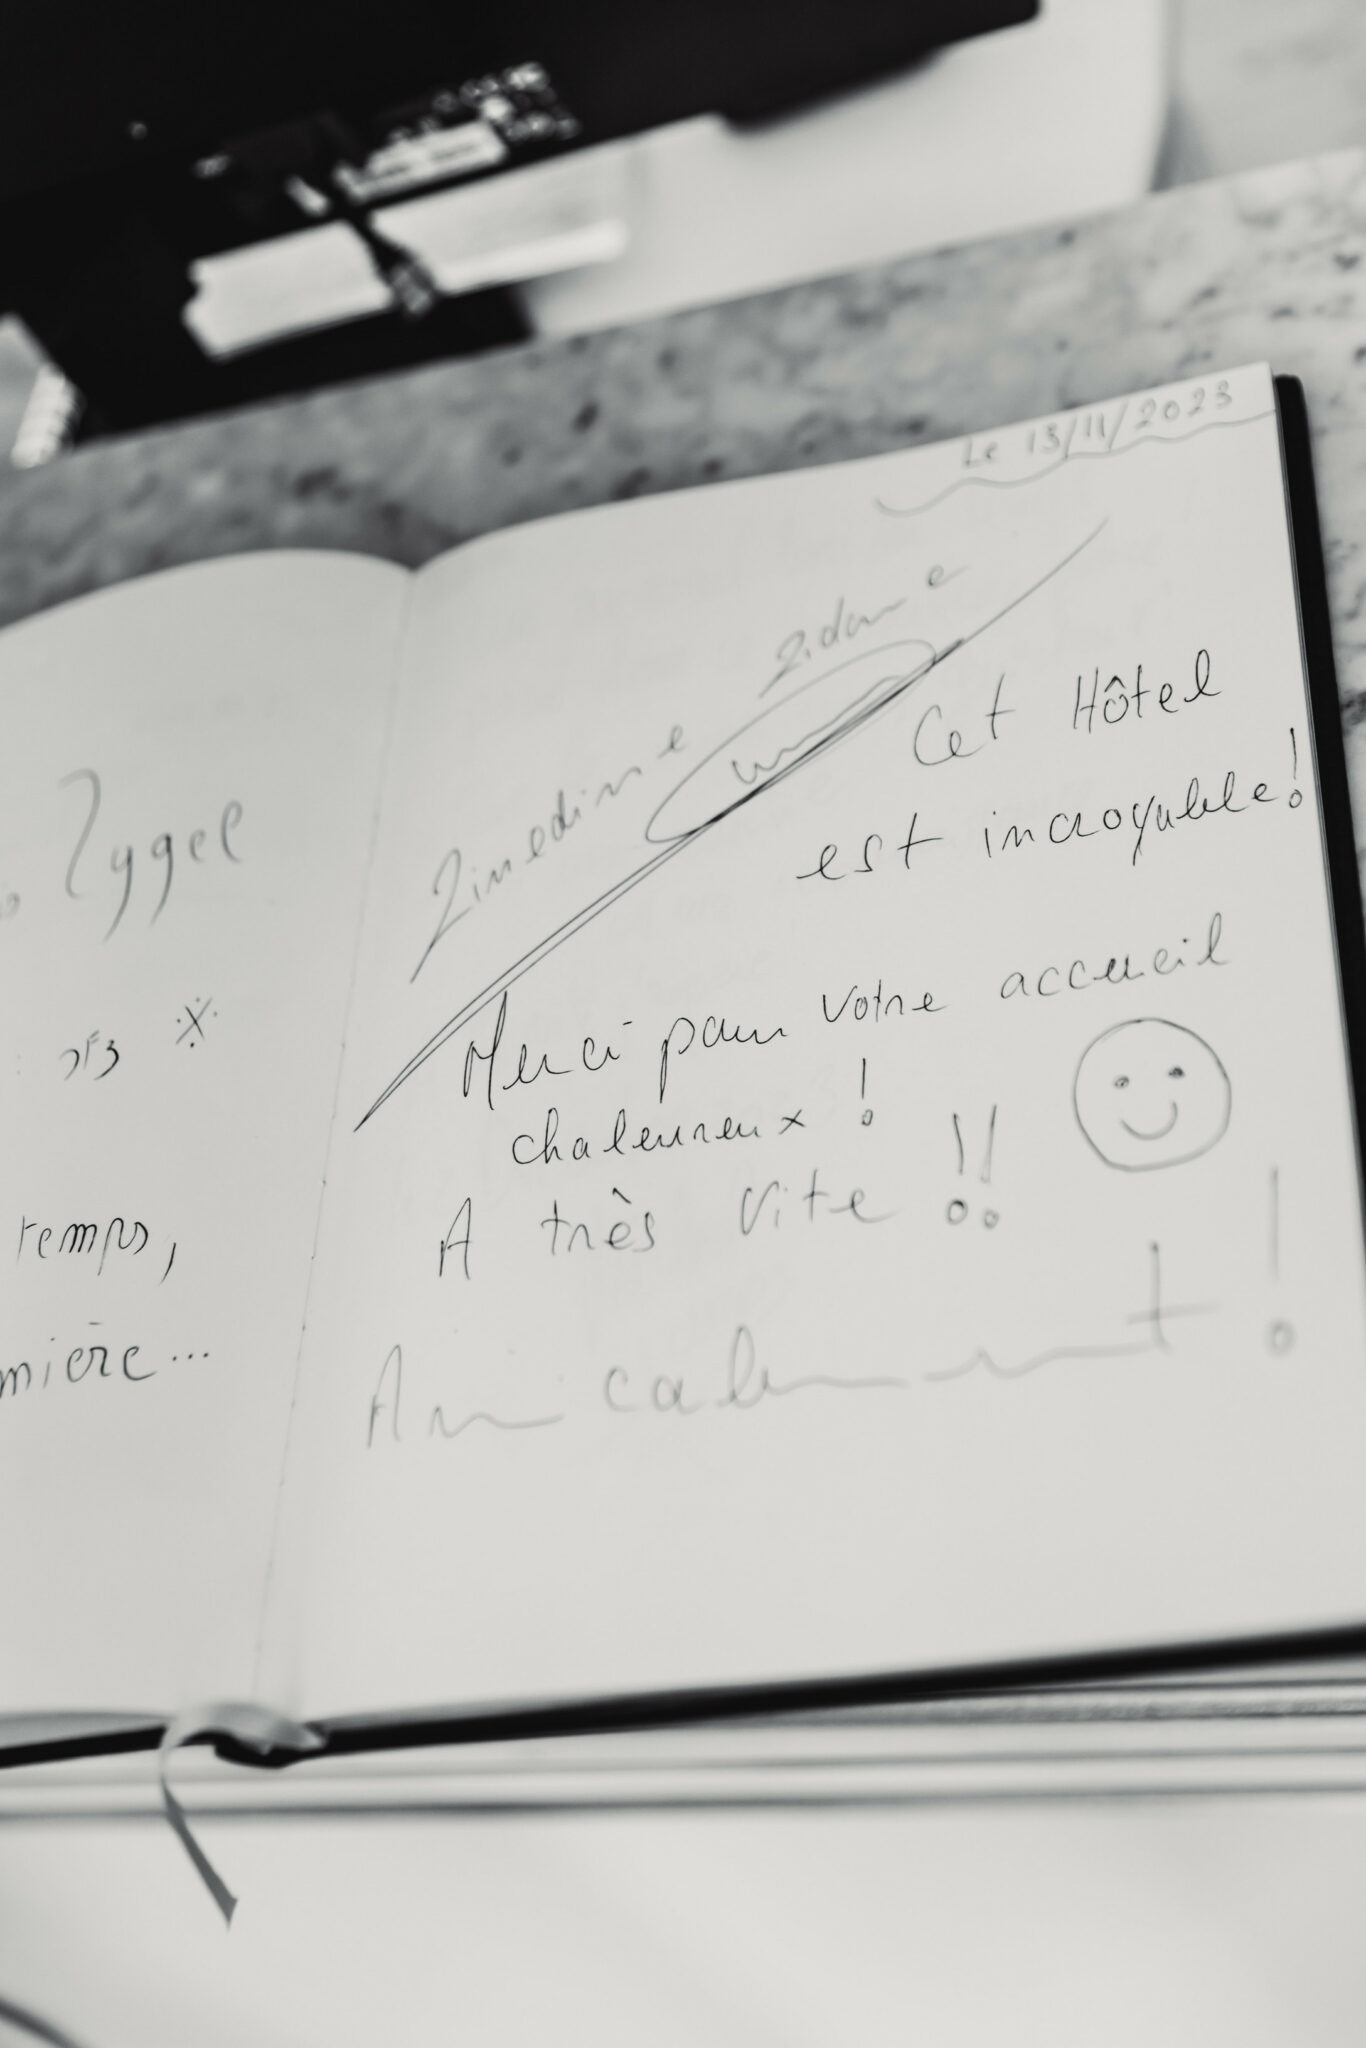 Zygel
temps,
mière...
Le 13/11/2023
Zinedine Zidane
Cet Hôtel
est incroyable!
Merci pour votre accueil
chaleureux !
A très vite !!
Amicalement !